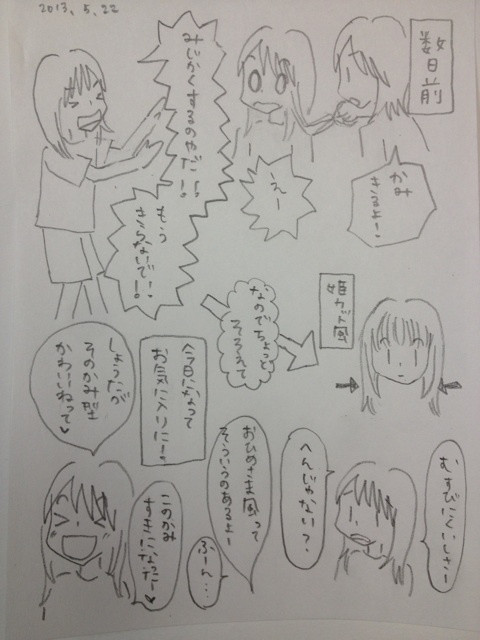 2013, 5, 22
数日前
かみ
きるよー!
えー
みじかくするのやだ!!
もう
きらないで!!
姫カット風
なのでちょっと
そろえて
むすびにくいしさー
へんじゃない?
おひめさま風って
そういうのあるよー
ふーん…
今日になって
お気に入りに!
しょうたが
そのかみ型
かわいいねって♥
このかみ
すきになったー♥